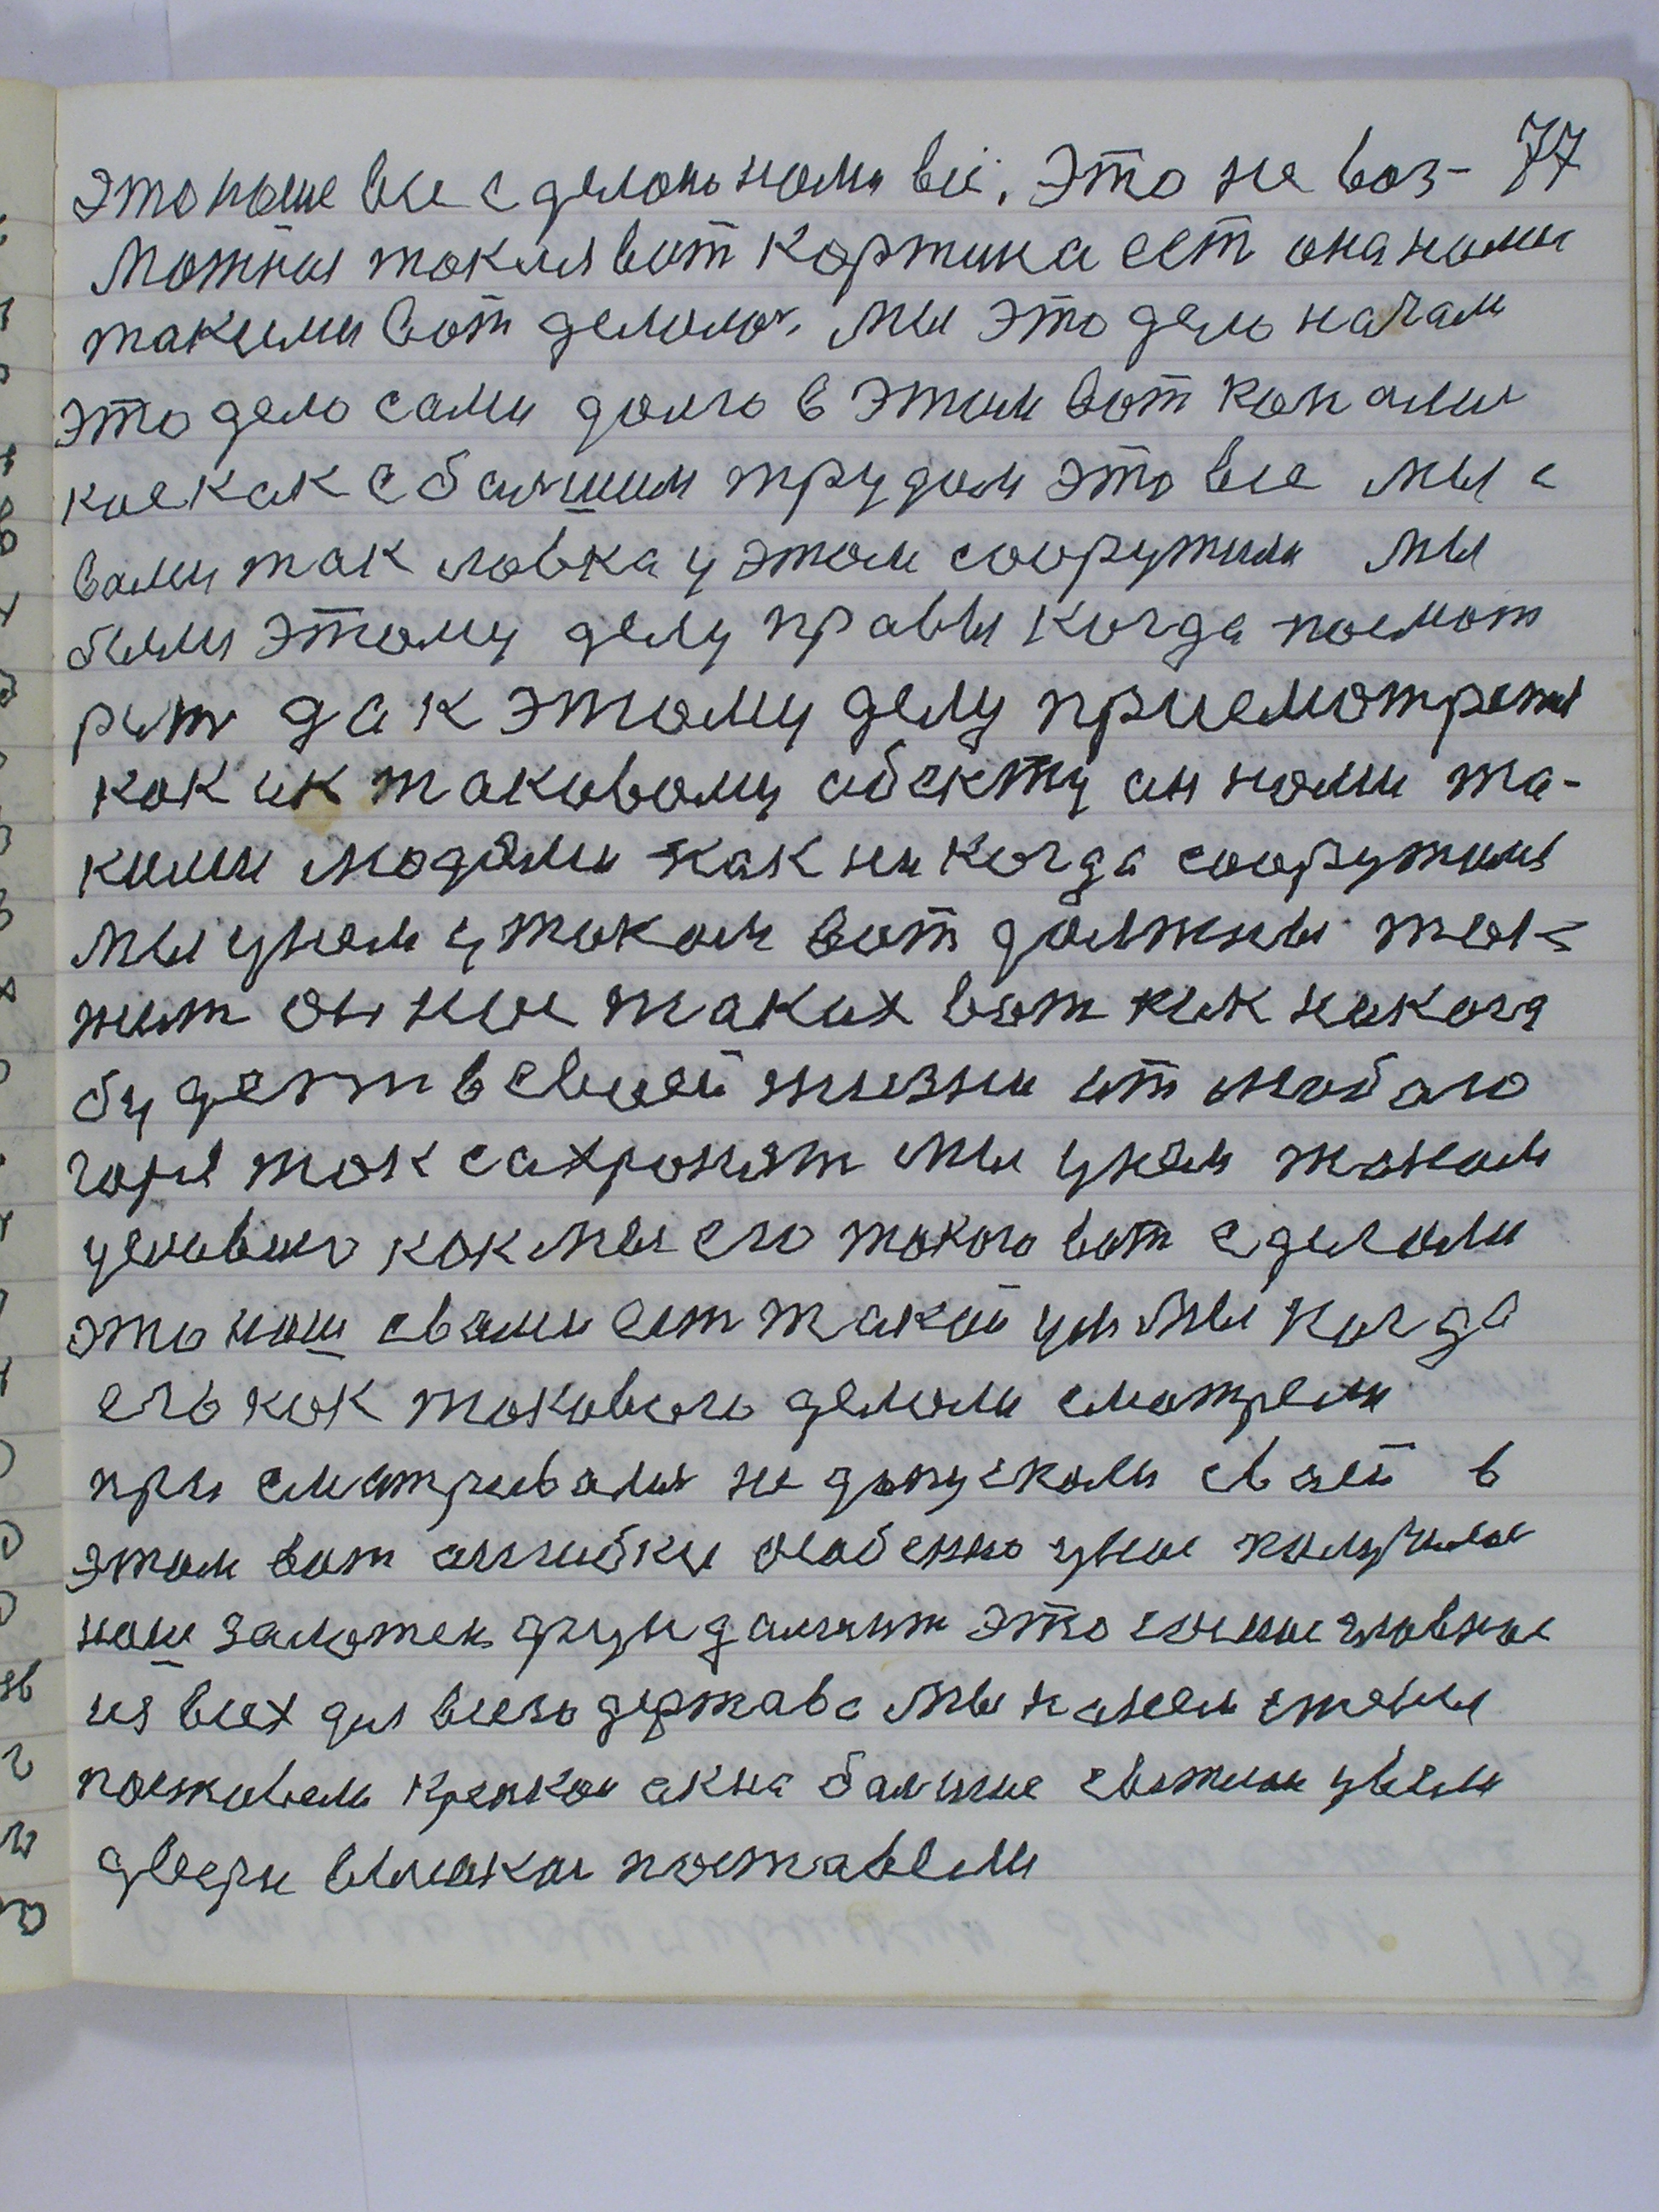 77
Это наше все сделано нами все. Это не воз-
можная такая вот картина ест она нами
такими вот делалас. Мы это дело начали
это дело сами долго в этим вот копали
кое как с большим трудом это все мы с
вами так ловка у этом сооружили мы
были этому делу правы когда посмот
рит да к этому делу присмотретця
как и к таковому обекту он нами та-
кими людями как никогда сооружился
мы у нем у таком вот должны
жит он нас таких вот как никогда
будет в своей жизни от любого
горя так сахронят мы у нем
условию как мы его такого вот сделали
это наш с вами ест такой ум мы когда
его как таковыого делали смотрели
при сматривалис не допускали своей в
этом вот ошибки особенно у нас получился
наш заложен фундамент это самое главное
из всех для всего держава мы на нем стены
поставели крепкаи окна большие
двери высокаи поставели